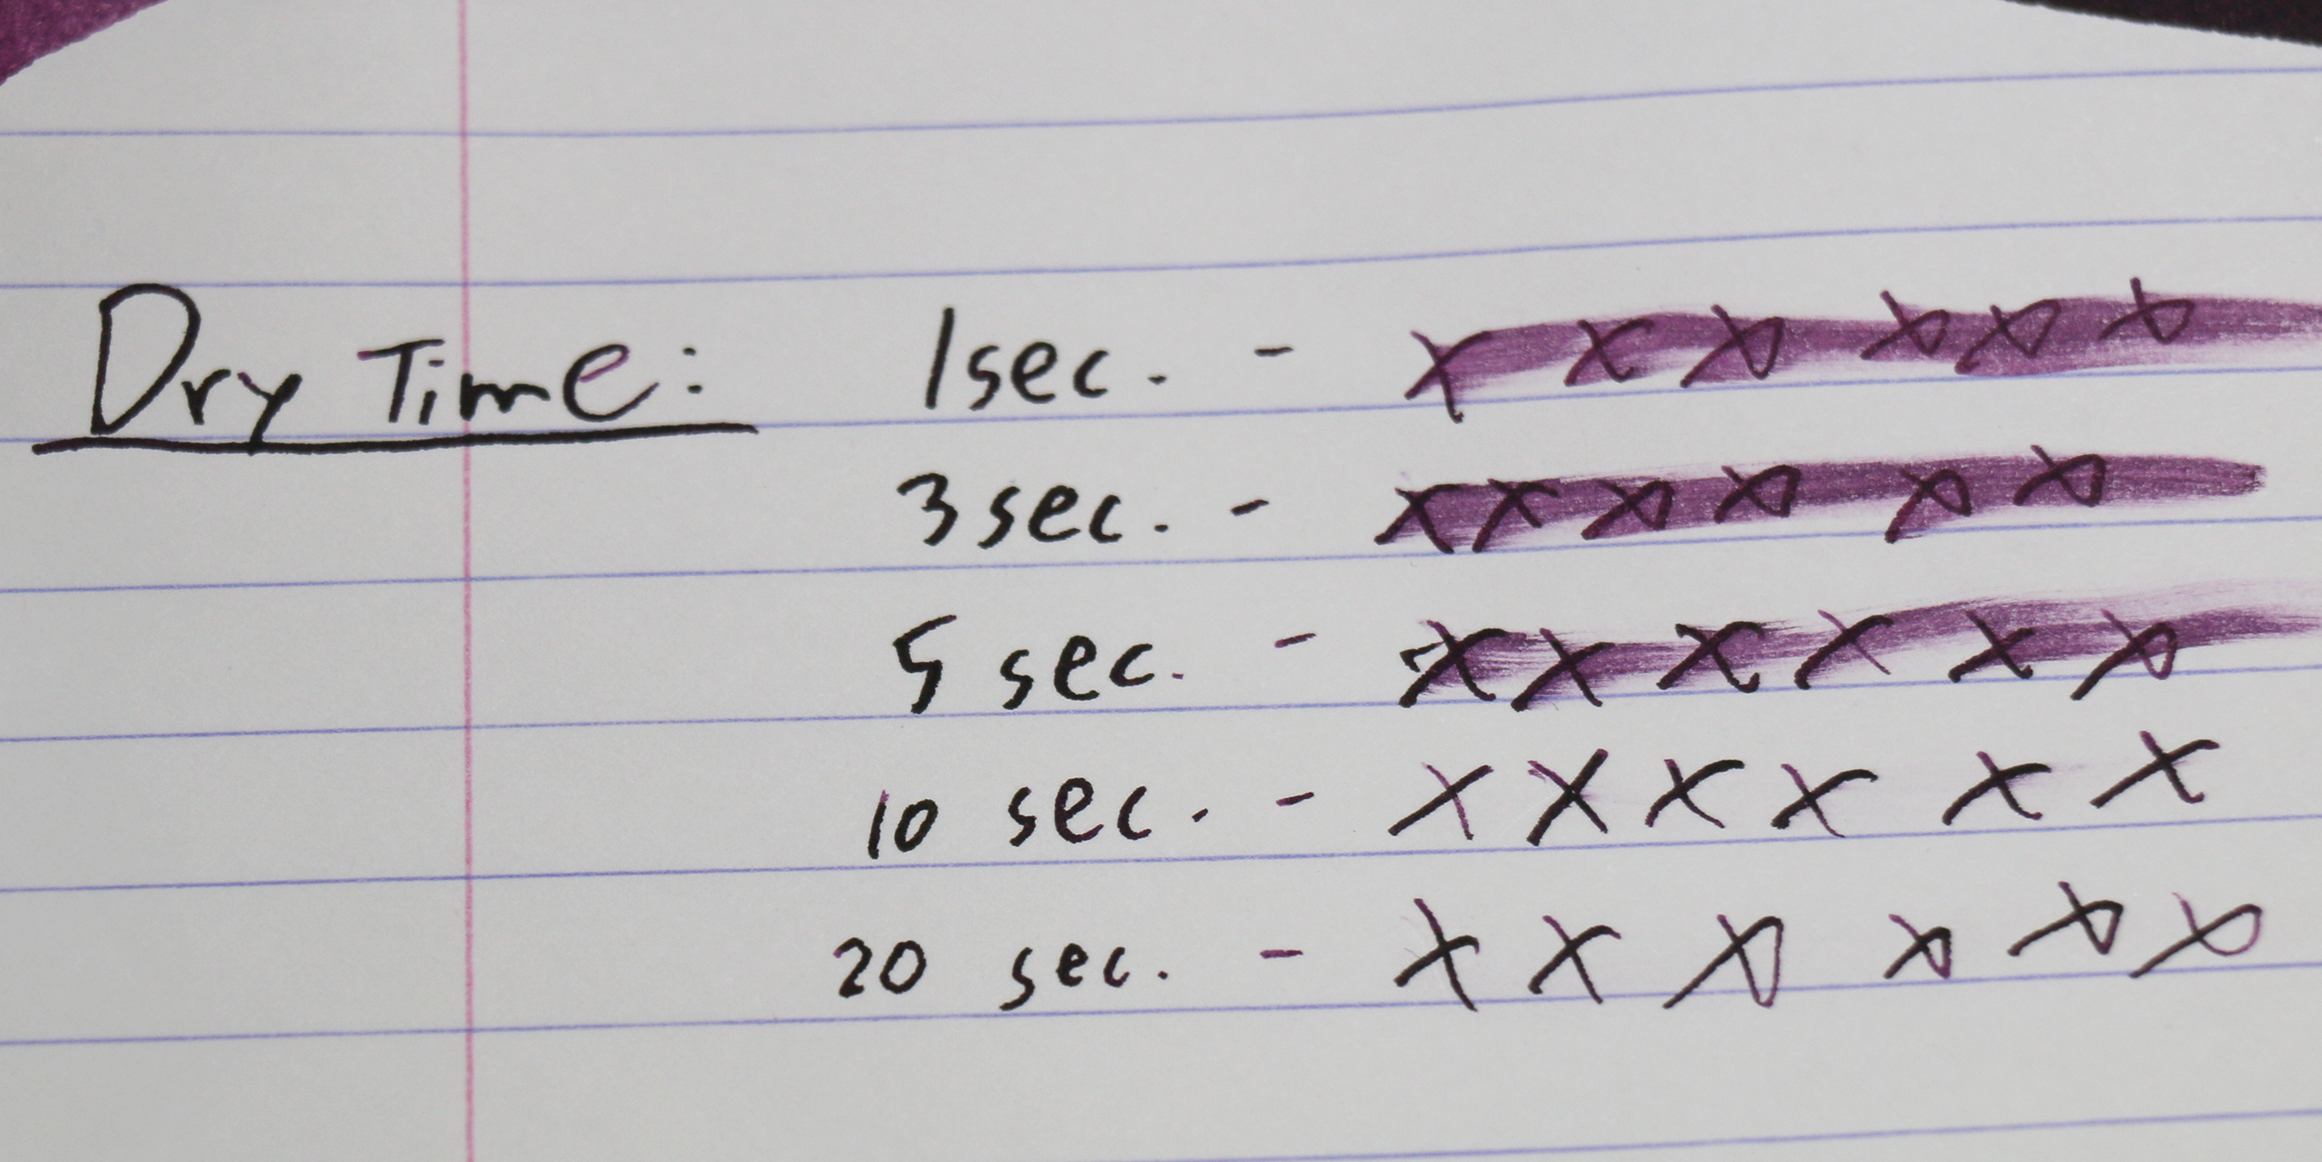 Dry Time: 1 sec. - x x x x x x
3 sec. - x x x x x x
5 sec. - x x x x x x
10 sec. - x x x x x x
20 sec. - x x x x x x